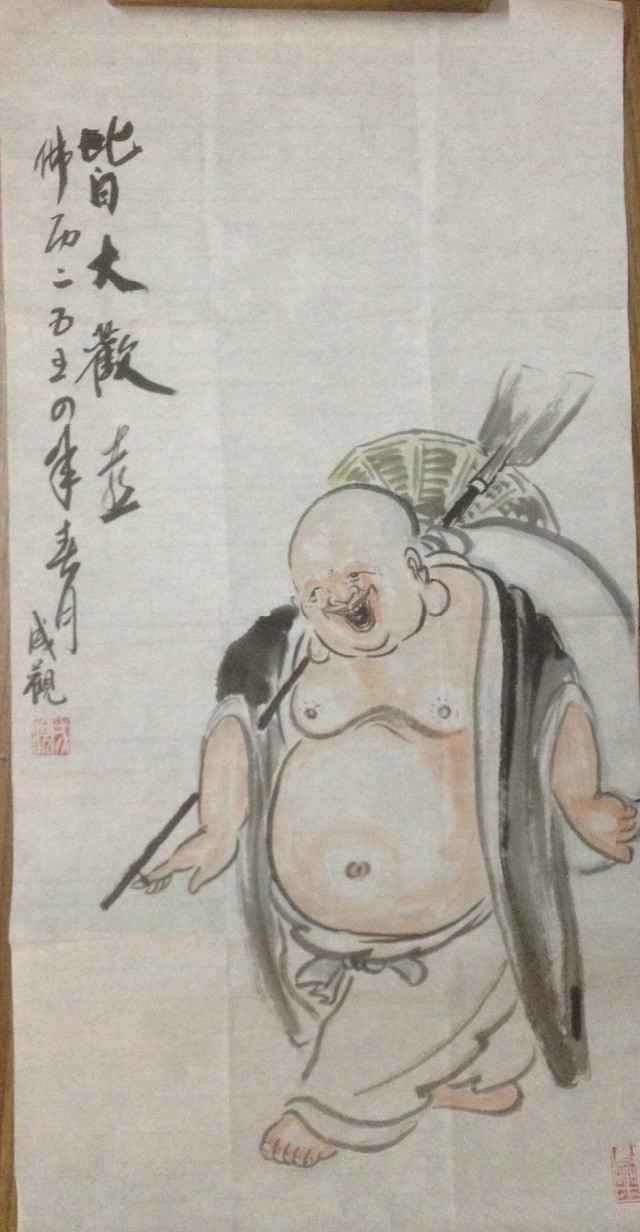 皆大歡喜
佛历二五五四年春月 成觀